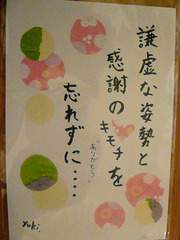 謙虚な姿勢と
感謝の
キモチを
"ありがとう"
忘れずに‥‥
yuki.